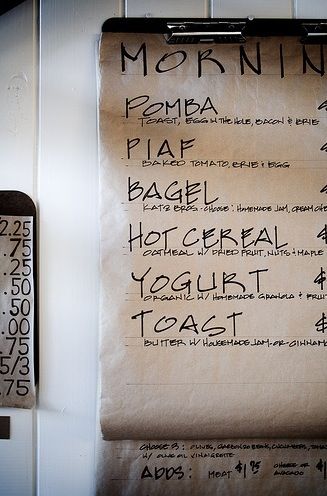 MORNIN
POMBA
TOAST, EGG IN THE HOLE, BACON & BRIE
PIAF
BAKED TOMATO, BRIE & EGG
BAGEL
KATZ BROS. - CHOOSE: HOMEMADE JAM, CREAM CHE
HOT CEREAL
OATMEAL W/ DRIED FRUIT, NUTS & MAPLE
YOGURT $
ORGANIC W/ HOMEMADE GRANOLA & FRUI
TOAST $
BUTTER W/ HOUSEMADE JAM -OR- CINNAM
CHOOSE 3: OLIVES, GARBONZO BEANS, CUCUMBERS, TOMA
W/ OLIVE OIL VINAIGRETTE
ADDS: MEAT $1.95 CHEESE OR
AVOCADO
2.25
.75
.25
.50
.50
.00
.75
5/3
.75